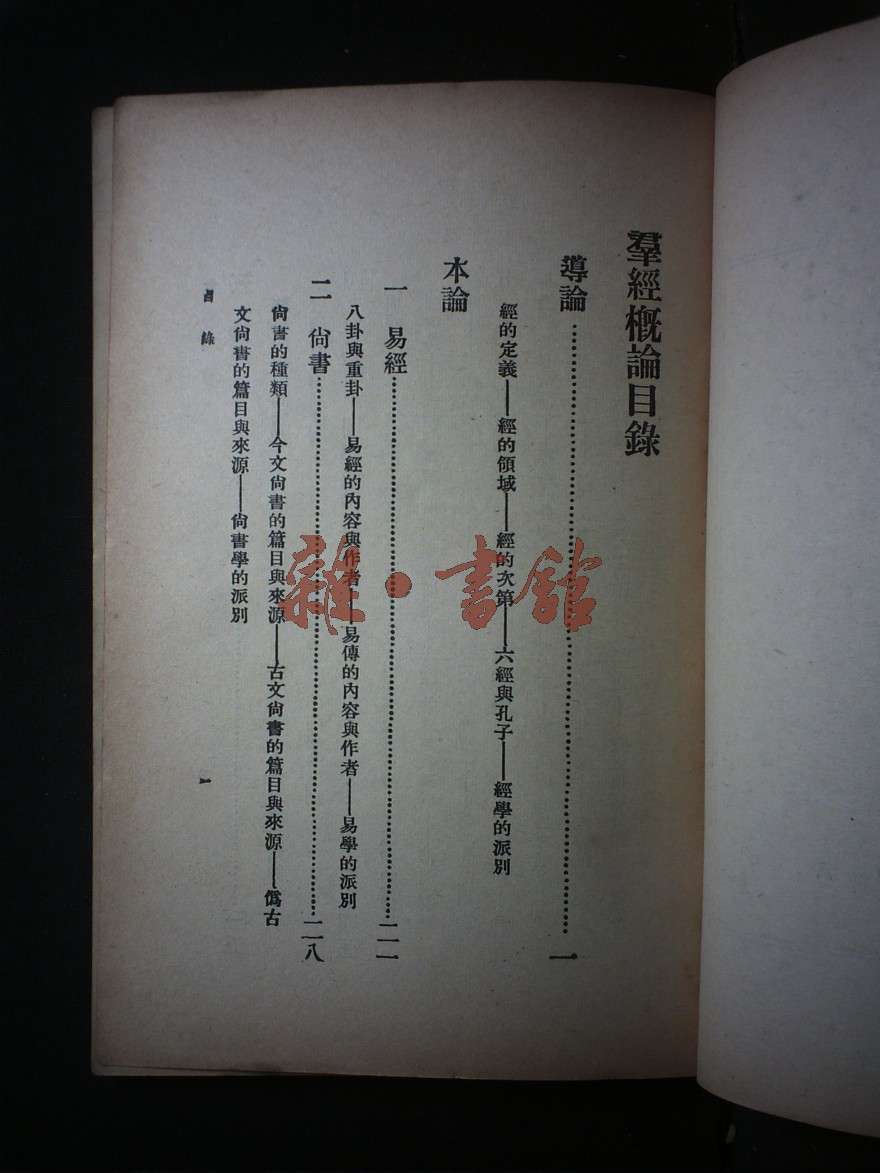 羣經槪論目錄
導論……一
經的定義——經的領域——經的次第——六經與孔子——經學的派別
本論
一 易經……二一
八卦與重卦——易經的內容與作者——易傳的內容與作者——易學的派別
二 尙書……二八
尙書的種類——今文尙書的篇目與來源——古文尙書的篇目與來源——僞古
文尙書的篇目與來源——尙書學的派別
目錄
一
雜·書館